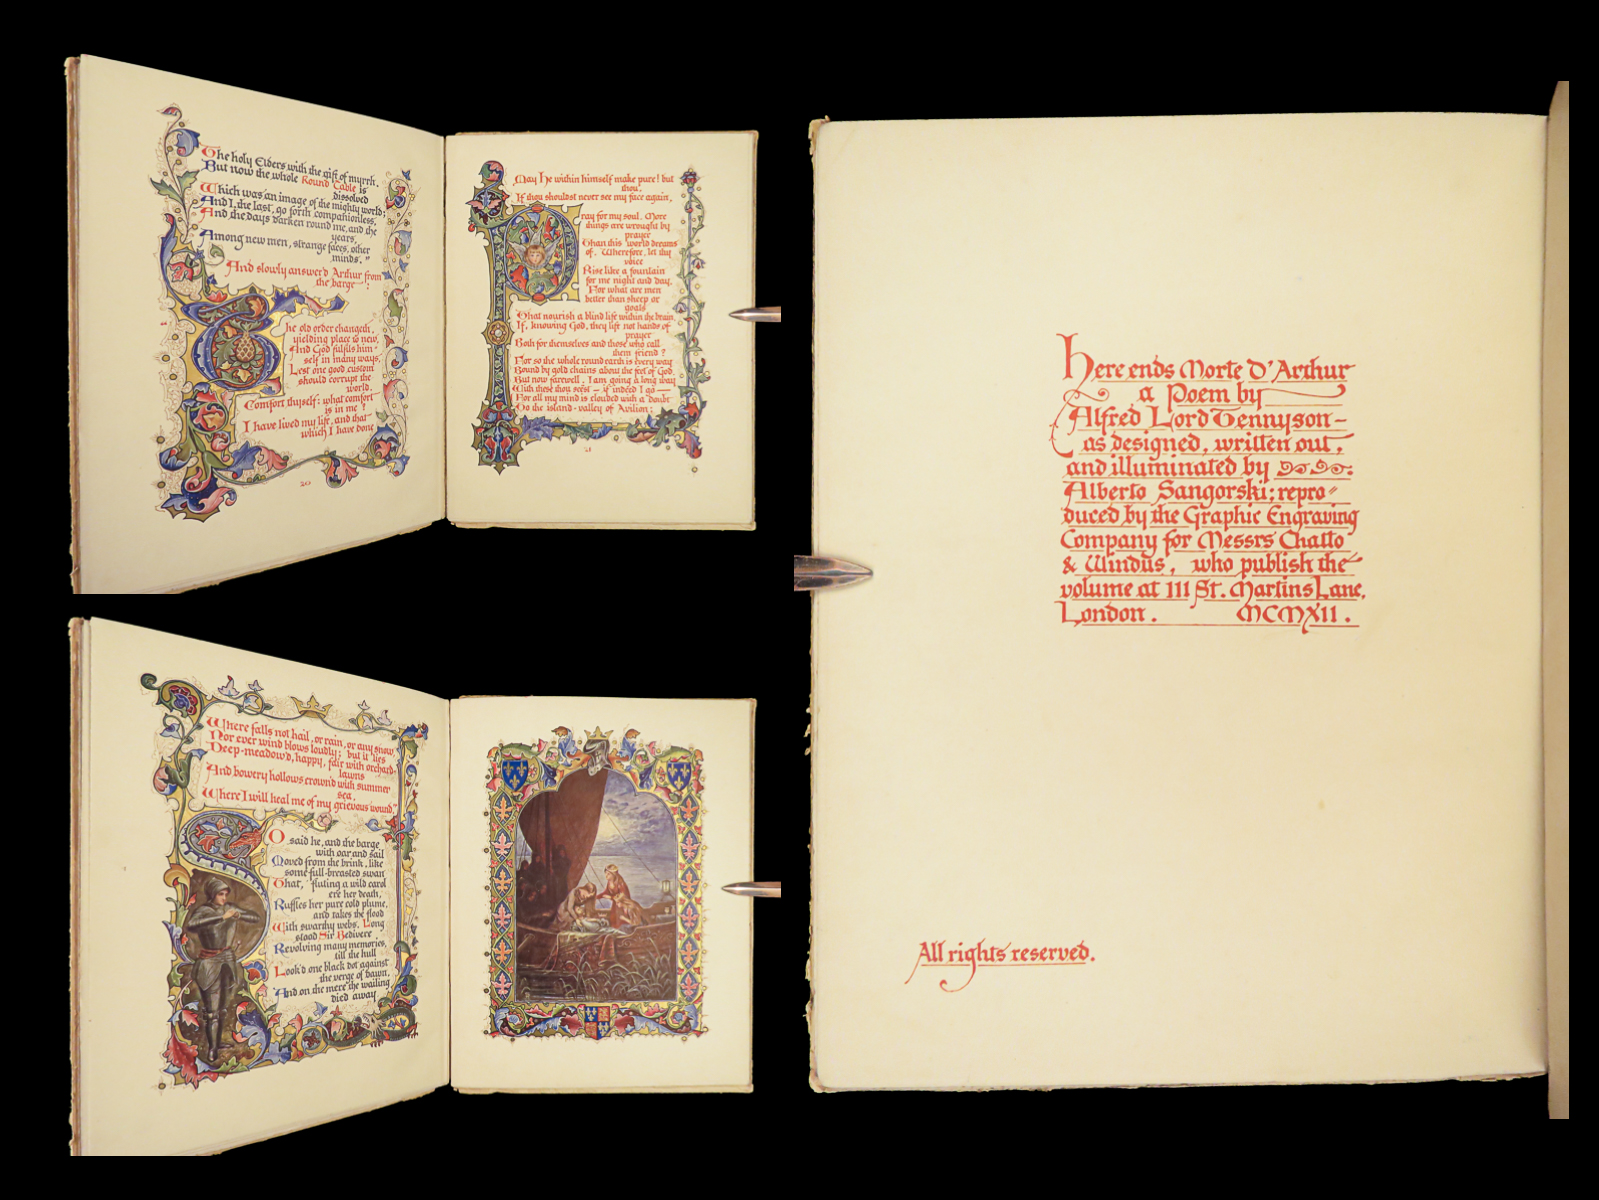 The holy Elders with the gift of myrrh.
But now the whole Round Table is
dissolved
Which was an image of the mighty world;
And I, the last, go forth companionless,
And the days darken round me, and the
years,
Among new men, strange faces, other
minds."
And slowly answer'd Arthur from
the barge:
The old order changeth,
yielding place to new,
And God fulfils him-
self in many ways,
Lest one good custom
should corrupt the
world.
Comfort thyself: what comfort
is in me?
I have lived my life, and that
which I have done
20
May He within himself make pure! but
thou,
If thou shouldst never see my face again,
Pray for my soul. More
things are wrought by
prayer
Than this world dreams
of. Wherefore, let thy
voice
Rise like a fountain
for me night and day.
For what are men
better than sheep or
goats
That nourish a blind life within the brain,
If, knowing God, they lift not hands of
prayer
Both for themselves and those who call
them friend?
For so the whole round earth is every way
Bound by gold chains about the feet of God.
But now farewell. I am going a long way
With these thou seëst — if indeed I go —
For all my mind is clouded with a doubt
To the island-valley of Avilion;
21
Where falls not hail, or rain, or any snow,
Nor ever wind blows loudly; but it lies
Deep-meadow'd, happy, fair with orchard-
lawns
And bowery hollows crown'd with summer
sea,
Where I will heal me of my grievous wound."
So said he, and the barge
with oar and sail
Moved from the brink, like
some full-breasted swan
That, fluting a wild carol
ere her death,
Ruffles her pure cold plume,
and takes the flood
With swarthy webs. Long
stood Sir Bedivere
Revolving many memories,
till the hull
Look'd one black dot against
the verge of dawn,
And on the mere the wailing
died away
Here ends Morte d'Arthur
a Poem by
Alfred Lord Tennyson —
as designed, written out,
and illuminated by
Alberto Sangorski; repro-
duced by the Graphic Engraving
Company for Messrs Chatto
& Windus, who publish the
volume at 111 St. Martins Lane,
London. MCMXII.
All rights reserved.